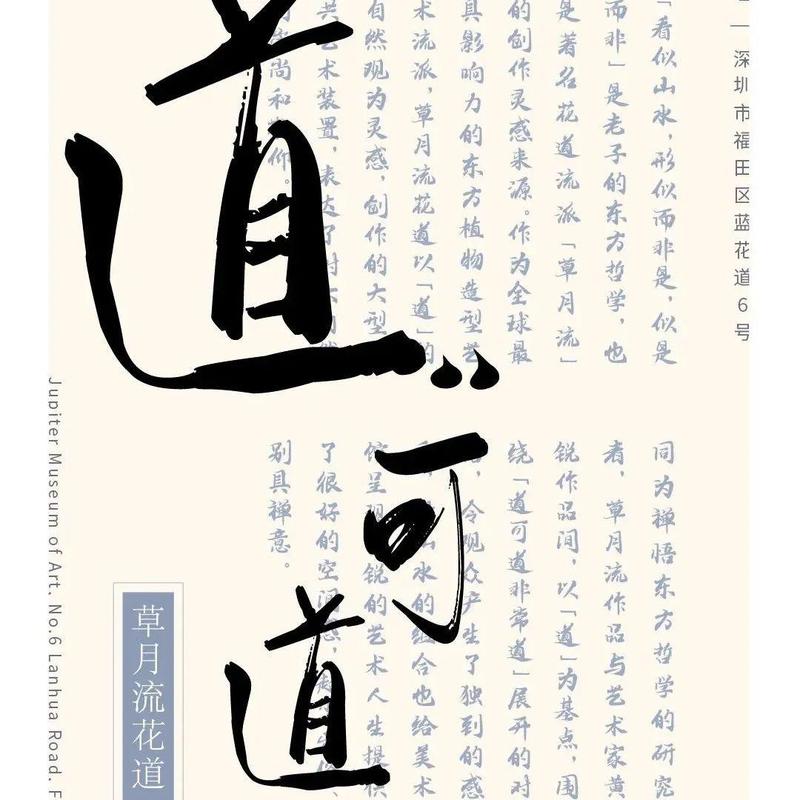 深圳市福田区蓝花道6号
「看似山水，形似而非是，似是
而非」是老子的东方哲学，也
是著名花道流派「草月流」
的创作灵感来源。作为全球最
具影响力的东方植物造型艺
术流派，草月流花道以「道」的
自然观为灵感，创作的大型
共艺术装置，表达了对
尚和仰。
同为禅悟东方哲学的研究
者，草月流作品与艺术家黄
锐作品间，以「道」为基点，围
绕「道可道非常道」展开的对
，令观众产生了独到的感
水的组合也给美术
馆呈现锐的艺术人生提供
了很好的空间感，
别具禅意。
道
可
道
草月流花道
Jupiter Museum of Art. No.6 Lanhua Road.